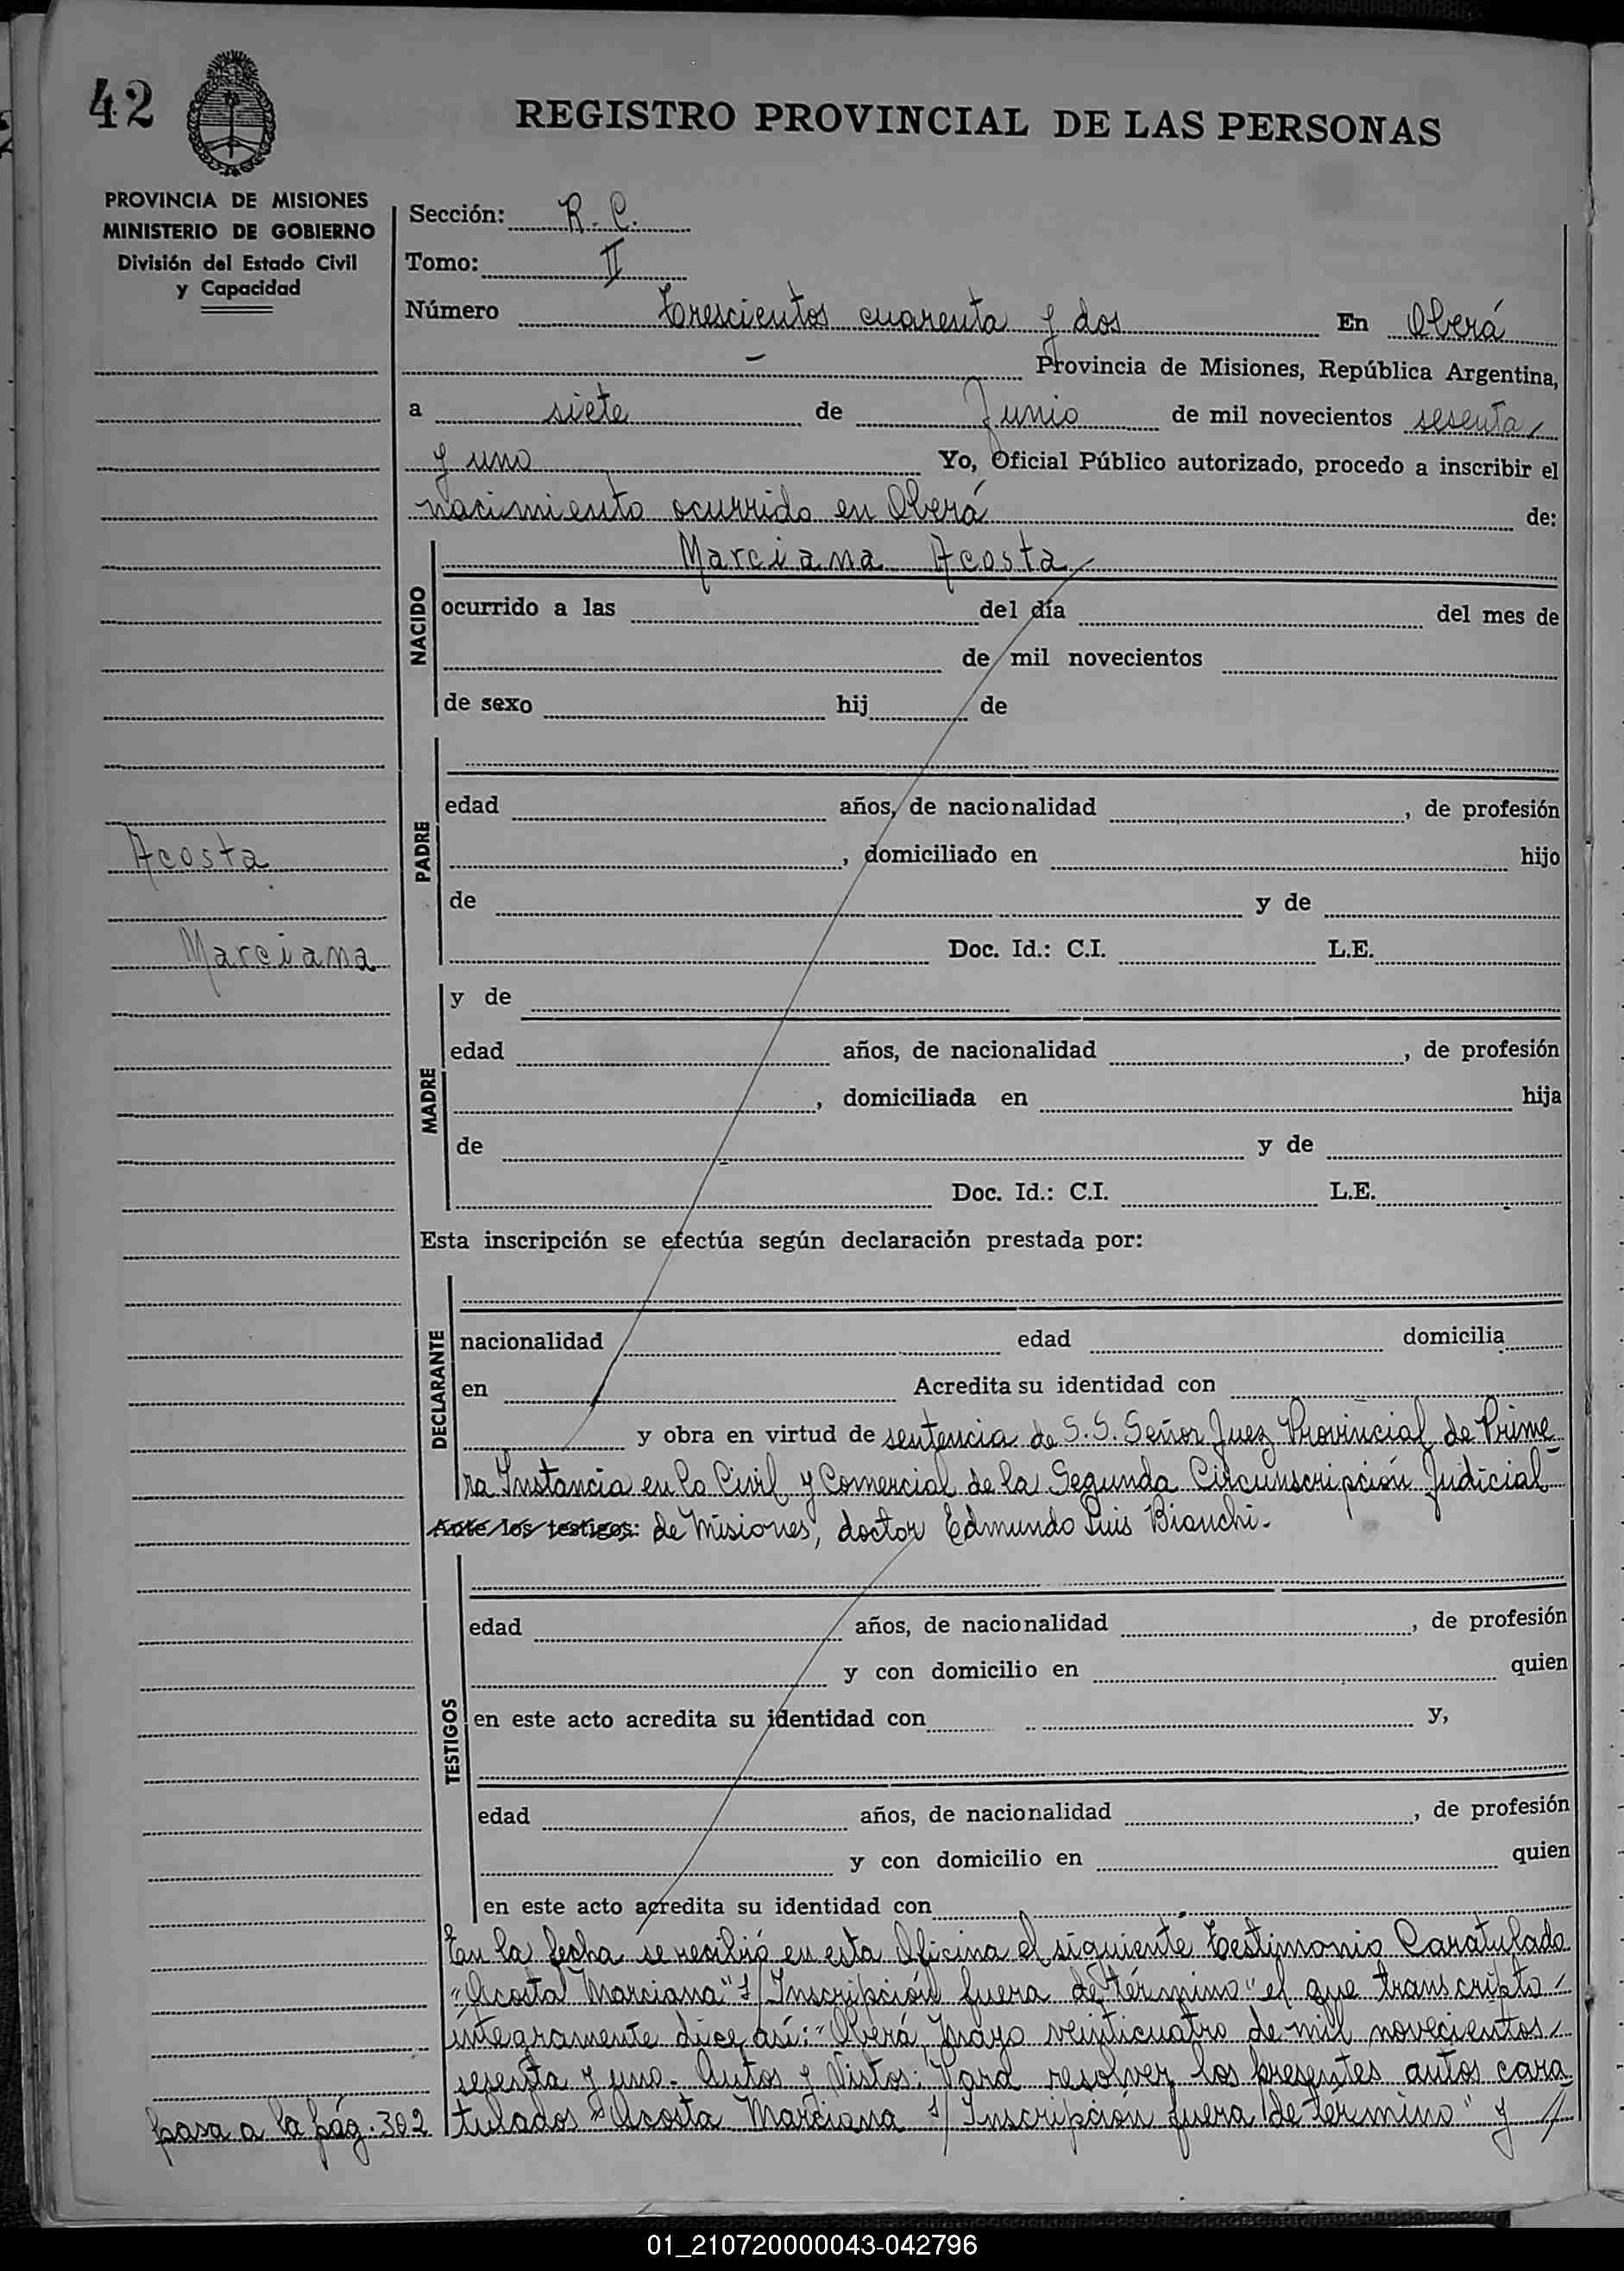 42
REGISTRO PROVINCIAL DE LAS PERSONAS
PROVINCIA DE MISIONES
MINISTERIO DE GOBIERNO
División del Estado Civil
y Capacidad
Sección: R. C.
Tomo: II
Número Trescientos cuarenta y dos En Oberá
Provincia de Misiones, República Argentina,
a siete de Junio de mil novecientos sesenta
y uno Yo, Oficial Público autorizado, procedo a inscribir el
nacimiento ocurrido en Oberá de:
Marciana Acosta
NACIDO
ocurrido a las del día del mes de
de mil novecientos
de sexo hij de
PADRE
edad años, de nacionalidad , de profesión
Acosta
, domiciliado en hijo
de y de
Marciana
Doc. Id.: C.I. L.E.
MADRE
y de
edad años, de nacionalidad , de profesión
, domiciliada en hija
de y de
Doc. Id.: C.I. L.E.
Esta inscripción se efectúa según declaración prestada por:
DECLARANTE
nacionalidad edad domicilia
en Acredita su identidad con
y obra en virtud de sentencia de S.S. Señor Juez Provincial de Prime
ra Instancia en lo Civil y Comercial de la Segunda Circunscripción Judicial
Ante los testigos: de Misiones, doctor Edmundo Luis Bianchi.
TESTIGOS
edad años, de nacionalidad , de profesión
y con domicilio en quien
en este acto acredita su identidad con y,
edad años, de nacionalidad , de profesión
y con domicilio en quien
en este acto acredita su identidad con
En la fecha se recibió en esta Oficina el siguiente testimonio Caratulado
"Acosta Marciana" s/ Inscripción fuera de término" el que transcripto
íntegramente dice así: "Oberá, Mayo veinticuatro de mil novecientos
sesenta y uno. Autos y Vistos: Para resolver los presentes autos cara
tulados "Acosta Marciana s/ Inscripción fuera de término" y
pasa a la pág. 302
01_210720000043-042796